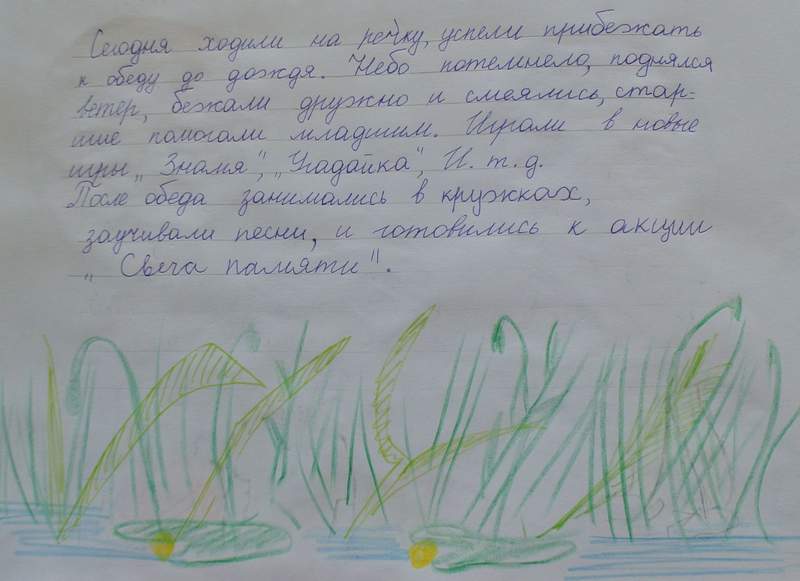 Сегодня ходили на речку, успели прибежать
к обеду до дождя. Небо потемнело, поднялся
ветер, бежали дружно и смеялись, стар-
шие помогали младшим. Играли в новые
игры „Знамя", „Угадайка", И. т. д.
После обеда занимались в кружках,
заучивали песни, и готовились к акции
„Свеча памяти".